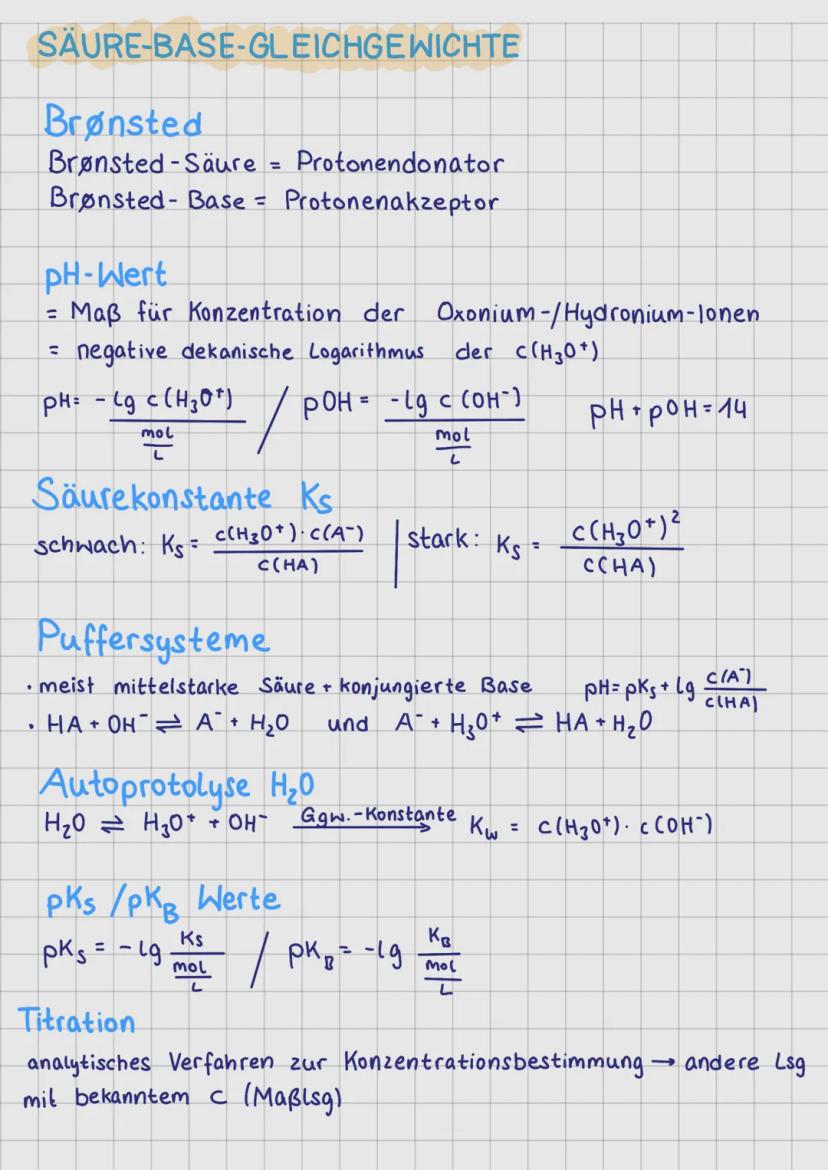 SÄURE-BASE-GLEICHGEWICHTE
Brønsted
Brønsted-Säure = Protonendonator
Brønsted-Base = Protonenakzeptor
pH-Wert
= Maß für Konzentration der Oxonium-/Hydronium-Ionen
= negative dekanische Logarithmus der c(H₃O⁺)
pH= -lg c(H₃O⁺) / mol/L / pOH = -lg c(OH⁻) / mol/L pH + pOH = 14
Säurekonstante Ks
schwach: Ks = c(H₃O⁺)·c(A⁻) / c(HA) | stark: Ks = c(H₃O⁺)² / c(HA)
Puffersysteme
· meist mittelstarke Säure + konjungierte Base pH = pKs + lg c(A⁻) / c(HA)
· HA + OH⁻ ⇌ A⁻ + H₂O und A⁻ + H₃O⁺ ⇌ HA + H₂O
Autoprotolyse H₂O
H₂O ⇌ H₃O⁺ + OH⁻ Ggw.-Konstante → Kw = c(H₃O⁺)·c(OH⁻)
pKs /pKB Werte
pKs = -lg Ks / mol/L / pKB = -lg KB / mol/L
Titration
analytisches Verfahren zur Konzentrationsbestimmung → andere Lsg
mit bekanntem c (Maßlsg)